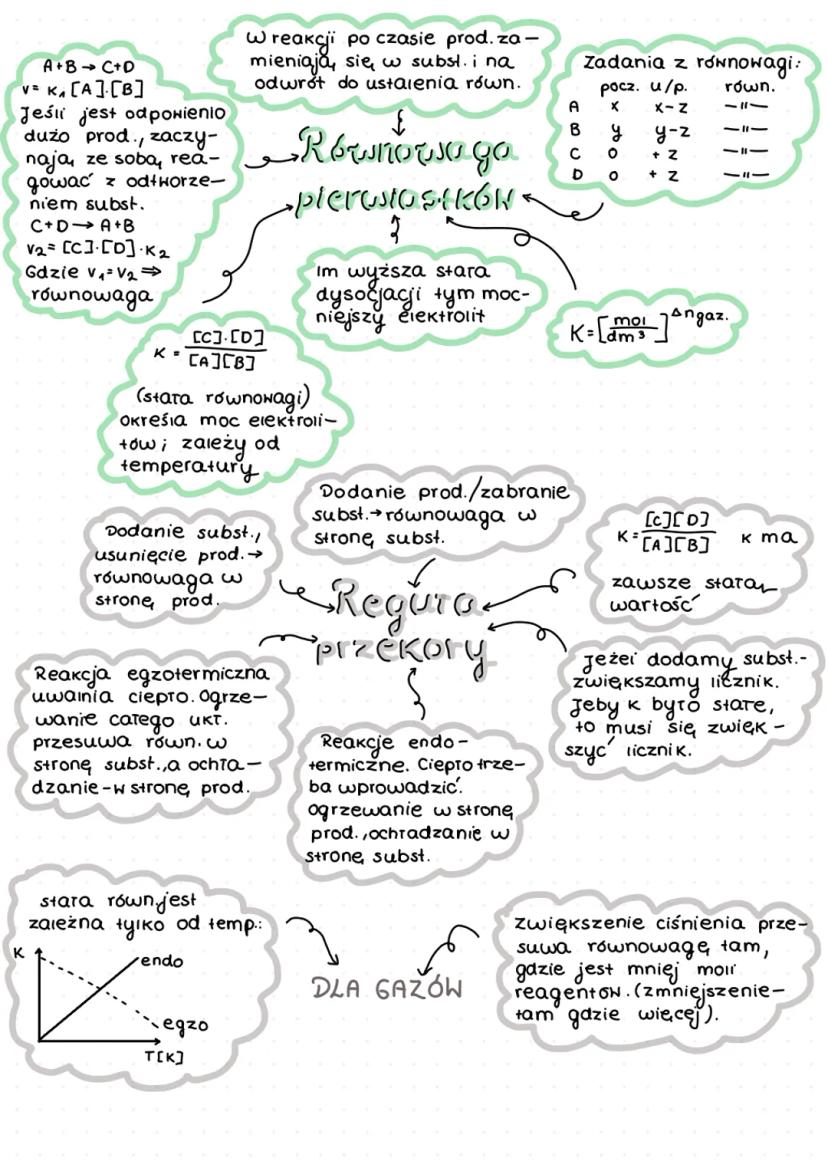 A+B → C+D
v= K₁[A]·[B]
Jeśli jest odpowienio
dużo prod., zaczy-
nają ze sobą rea-
gować z odtworze-
niem subst.
C+D → A+B
v₂= [C]·[D]·K₂
Gdzie v₁=v₂ ⇒
równowaga
W reakcji po czasie prod. za-
mieniają się w subst. i na
odwrót do ustalenia równ.
Zadania z równowagi:
pocz. u/p. równ.
A x x-z —"—
B y y-z —"—
C 0 +z —"—
D 0 +z —"—
Równowaga
pierwiastków
Im wyższa stała
dysocjacji tym moc-
niejszy elektrolit
K=[mol/dm³]^Δn gaz.
K = [C]·[D]/[A][B]
(stała równowagi)
określa moc elektroli-
tów; zależy od
temperatury
Dodanie prod./zabranie
subst.→równowaga w
stronę subst.
Dodanie subst.,
usunięcie prod.→
równowaga w
stronę prod.
K=[C][D]/[A][B] K ma
zawsze stałą
wartość
Reguła
przekory
Reakcja egzotermiczna
uwalnia ciepło. Ogrze-
wanie całego ukł.
przesuwa równ. w
stronę subst., a ochła-
dzanie-w stronę prod.
Reakcje endo-
termiczne. Ciepło trze-
ba wprowadzić.
Ogrzewanie w stronę
prod., ochładzanie w
stronę subst.
Jeżel dodamy subst.-
zwiększamy licznik.
Jeby K było stałe,
to musi się zwięk-
szyć licznik.
stała równ. jest
zależna tylko od temp.:
K
endo
egzo
T[K]
DLA GAZÓW
Zwiększenie ciśnienia prze-
suwa równowagę tam,
gdzie jest mniej moli
reagentów. (zmniejszenie-
tam gdzie więcej).